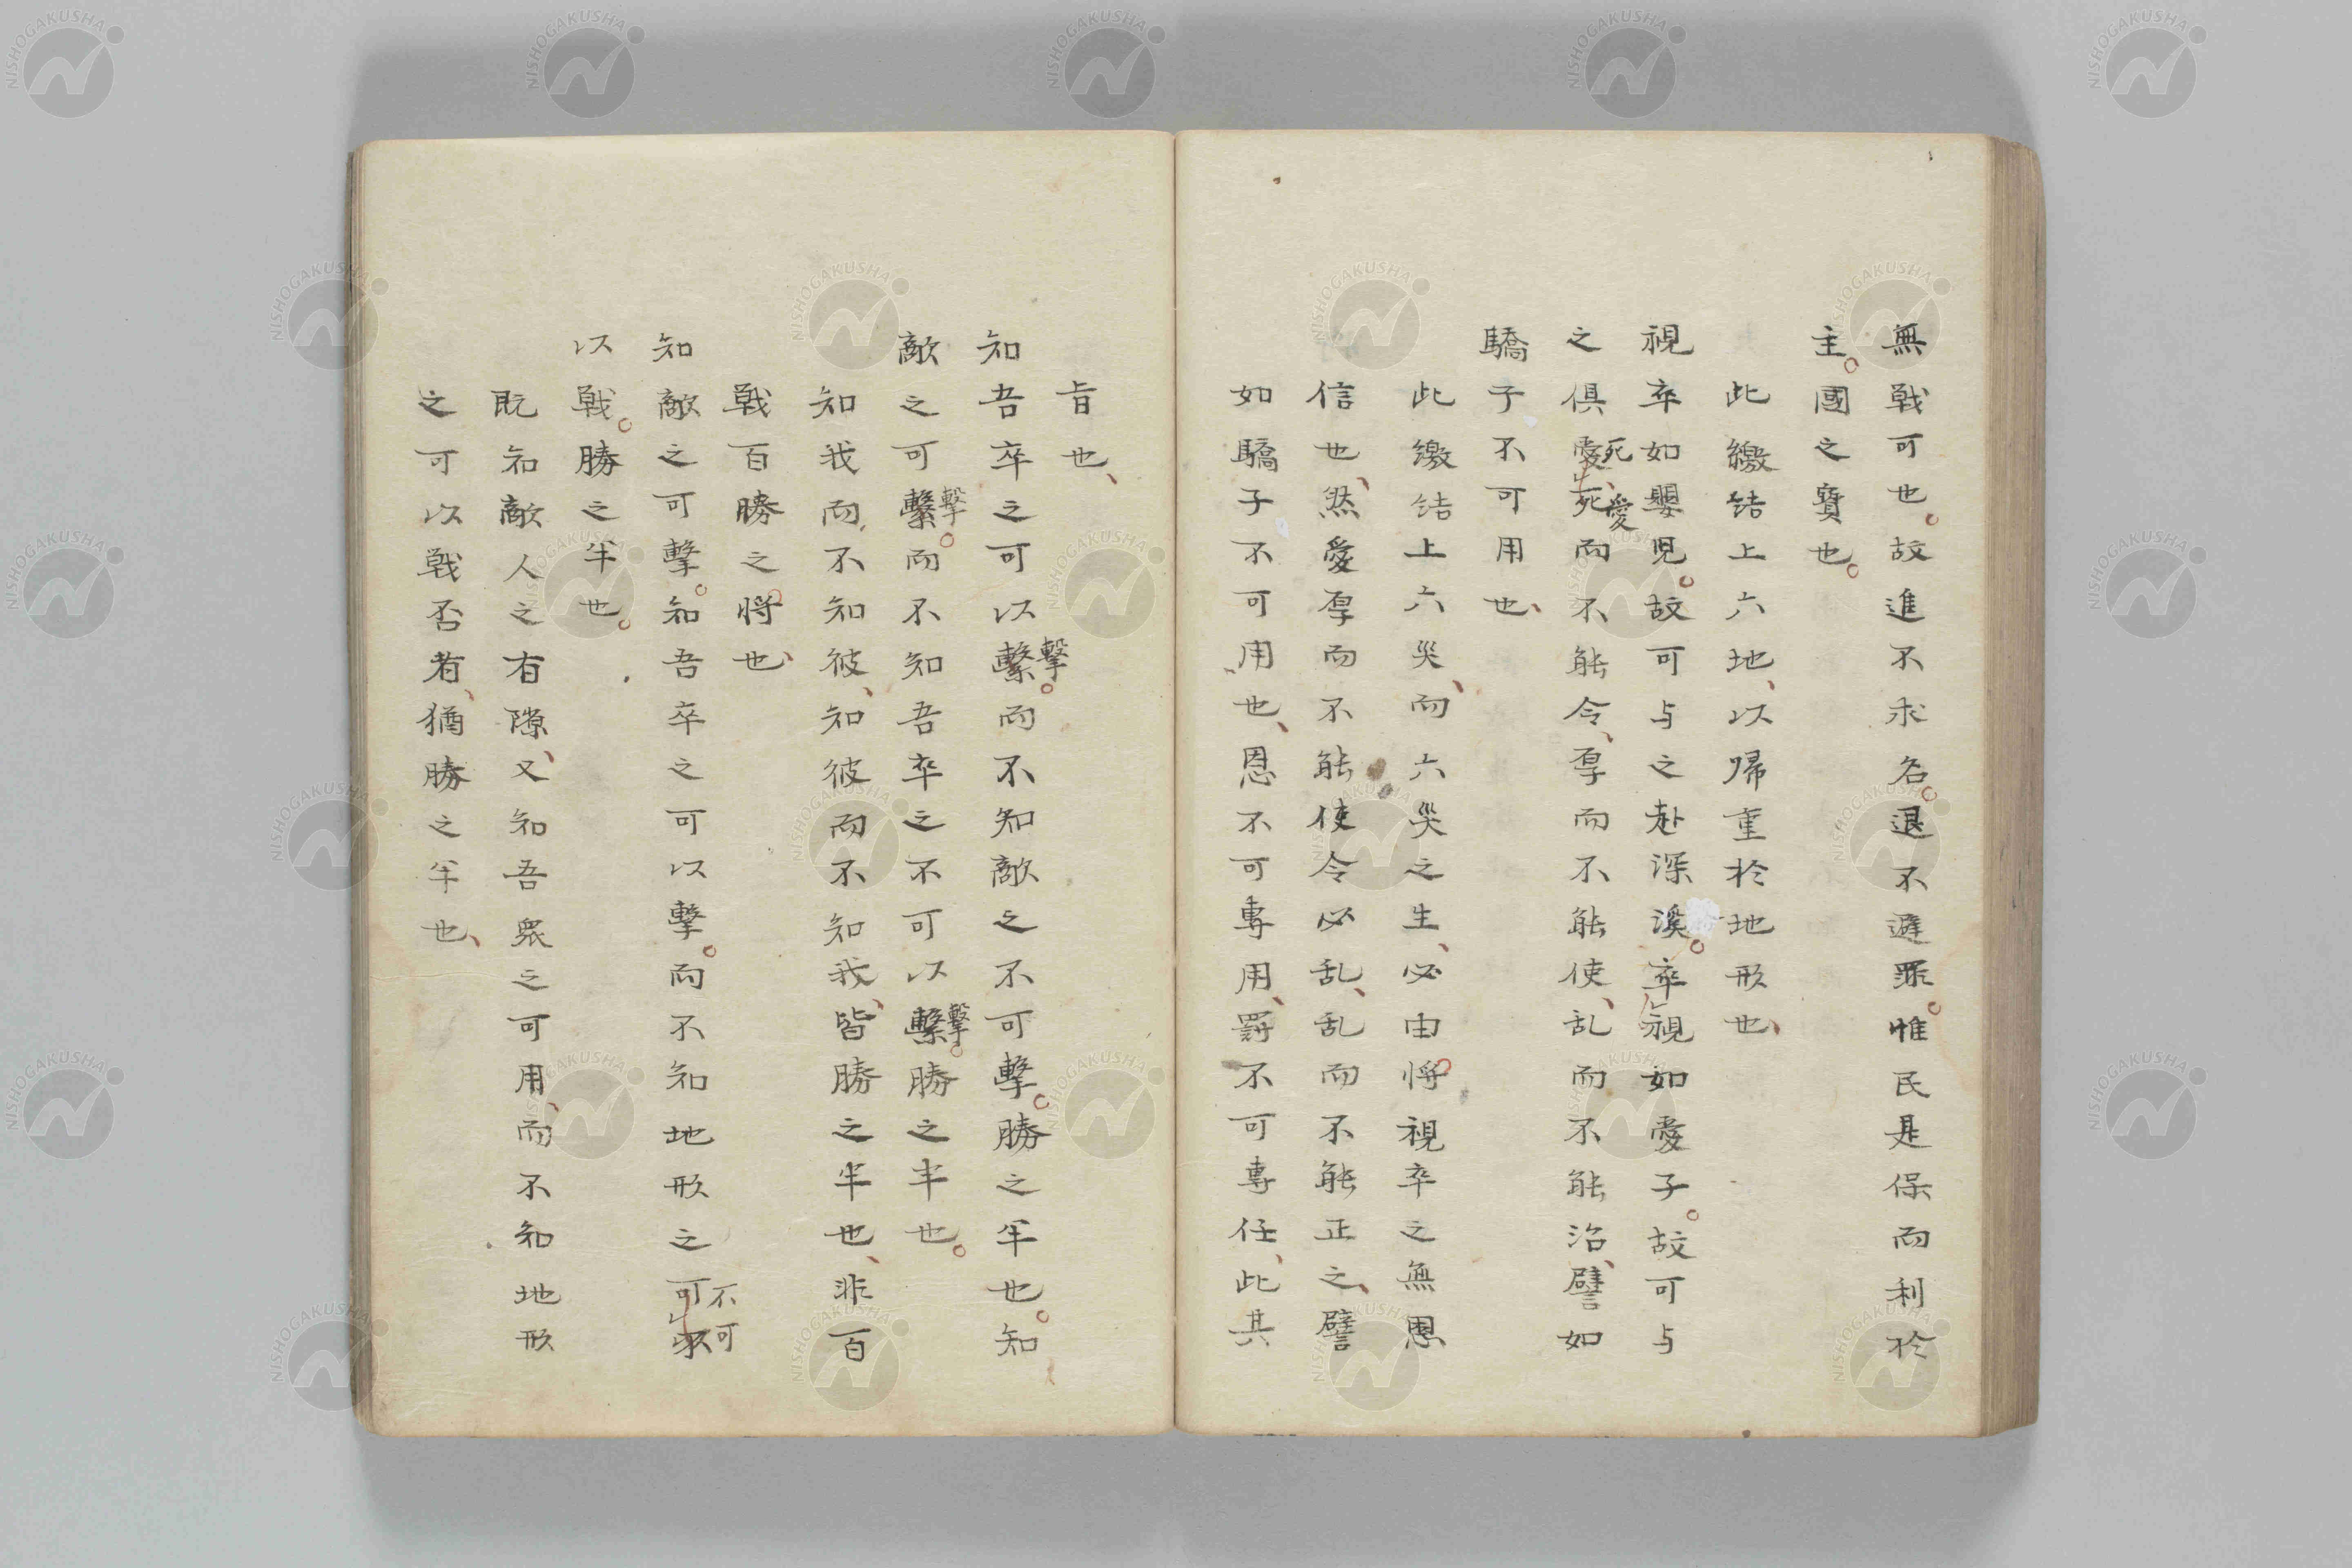 無戰可也。故進不求名。退不避罪。惟民是保而利於
主。國之寶也。
此繳結上六地、以帰重於地形也、
視卒如嬰児。故可与之赴深溪。卒視如愛子。故可与
之俱愛死而不能令、厚而不能使、乱而不能治、譬如
死愛
驕子不可用也、
此繳結上六災、而六災之生、必由将視卒之無恩
信也、然愛厚而不能使令必乱、乱而不能正之、譬
如驕子不可用也、恩不可專用、罸不可專任、此其
旨也、
知吾卒之可以繫。而不知敵之不可擊。勝之半也。知
擊
敵之可繫。而不知吾卒之不可以繫。勝之半也。
擊
擊
知我而不知彼、知彼而不知我、皆勝之半也、非百
戰百勝之将也、
知敵之可擊。知吾卒之可以擊。而不知地形之可不
不可
以戰。勝之半也。
既知敵人之有隙、又知吾衆之可用、而不知地形
之可以戰否者、猶勝之半也、
NISHOGAKUSHA